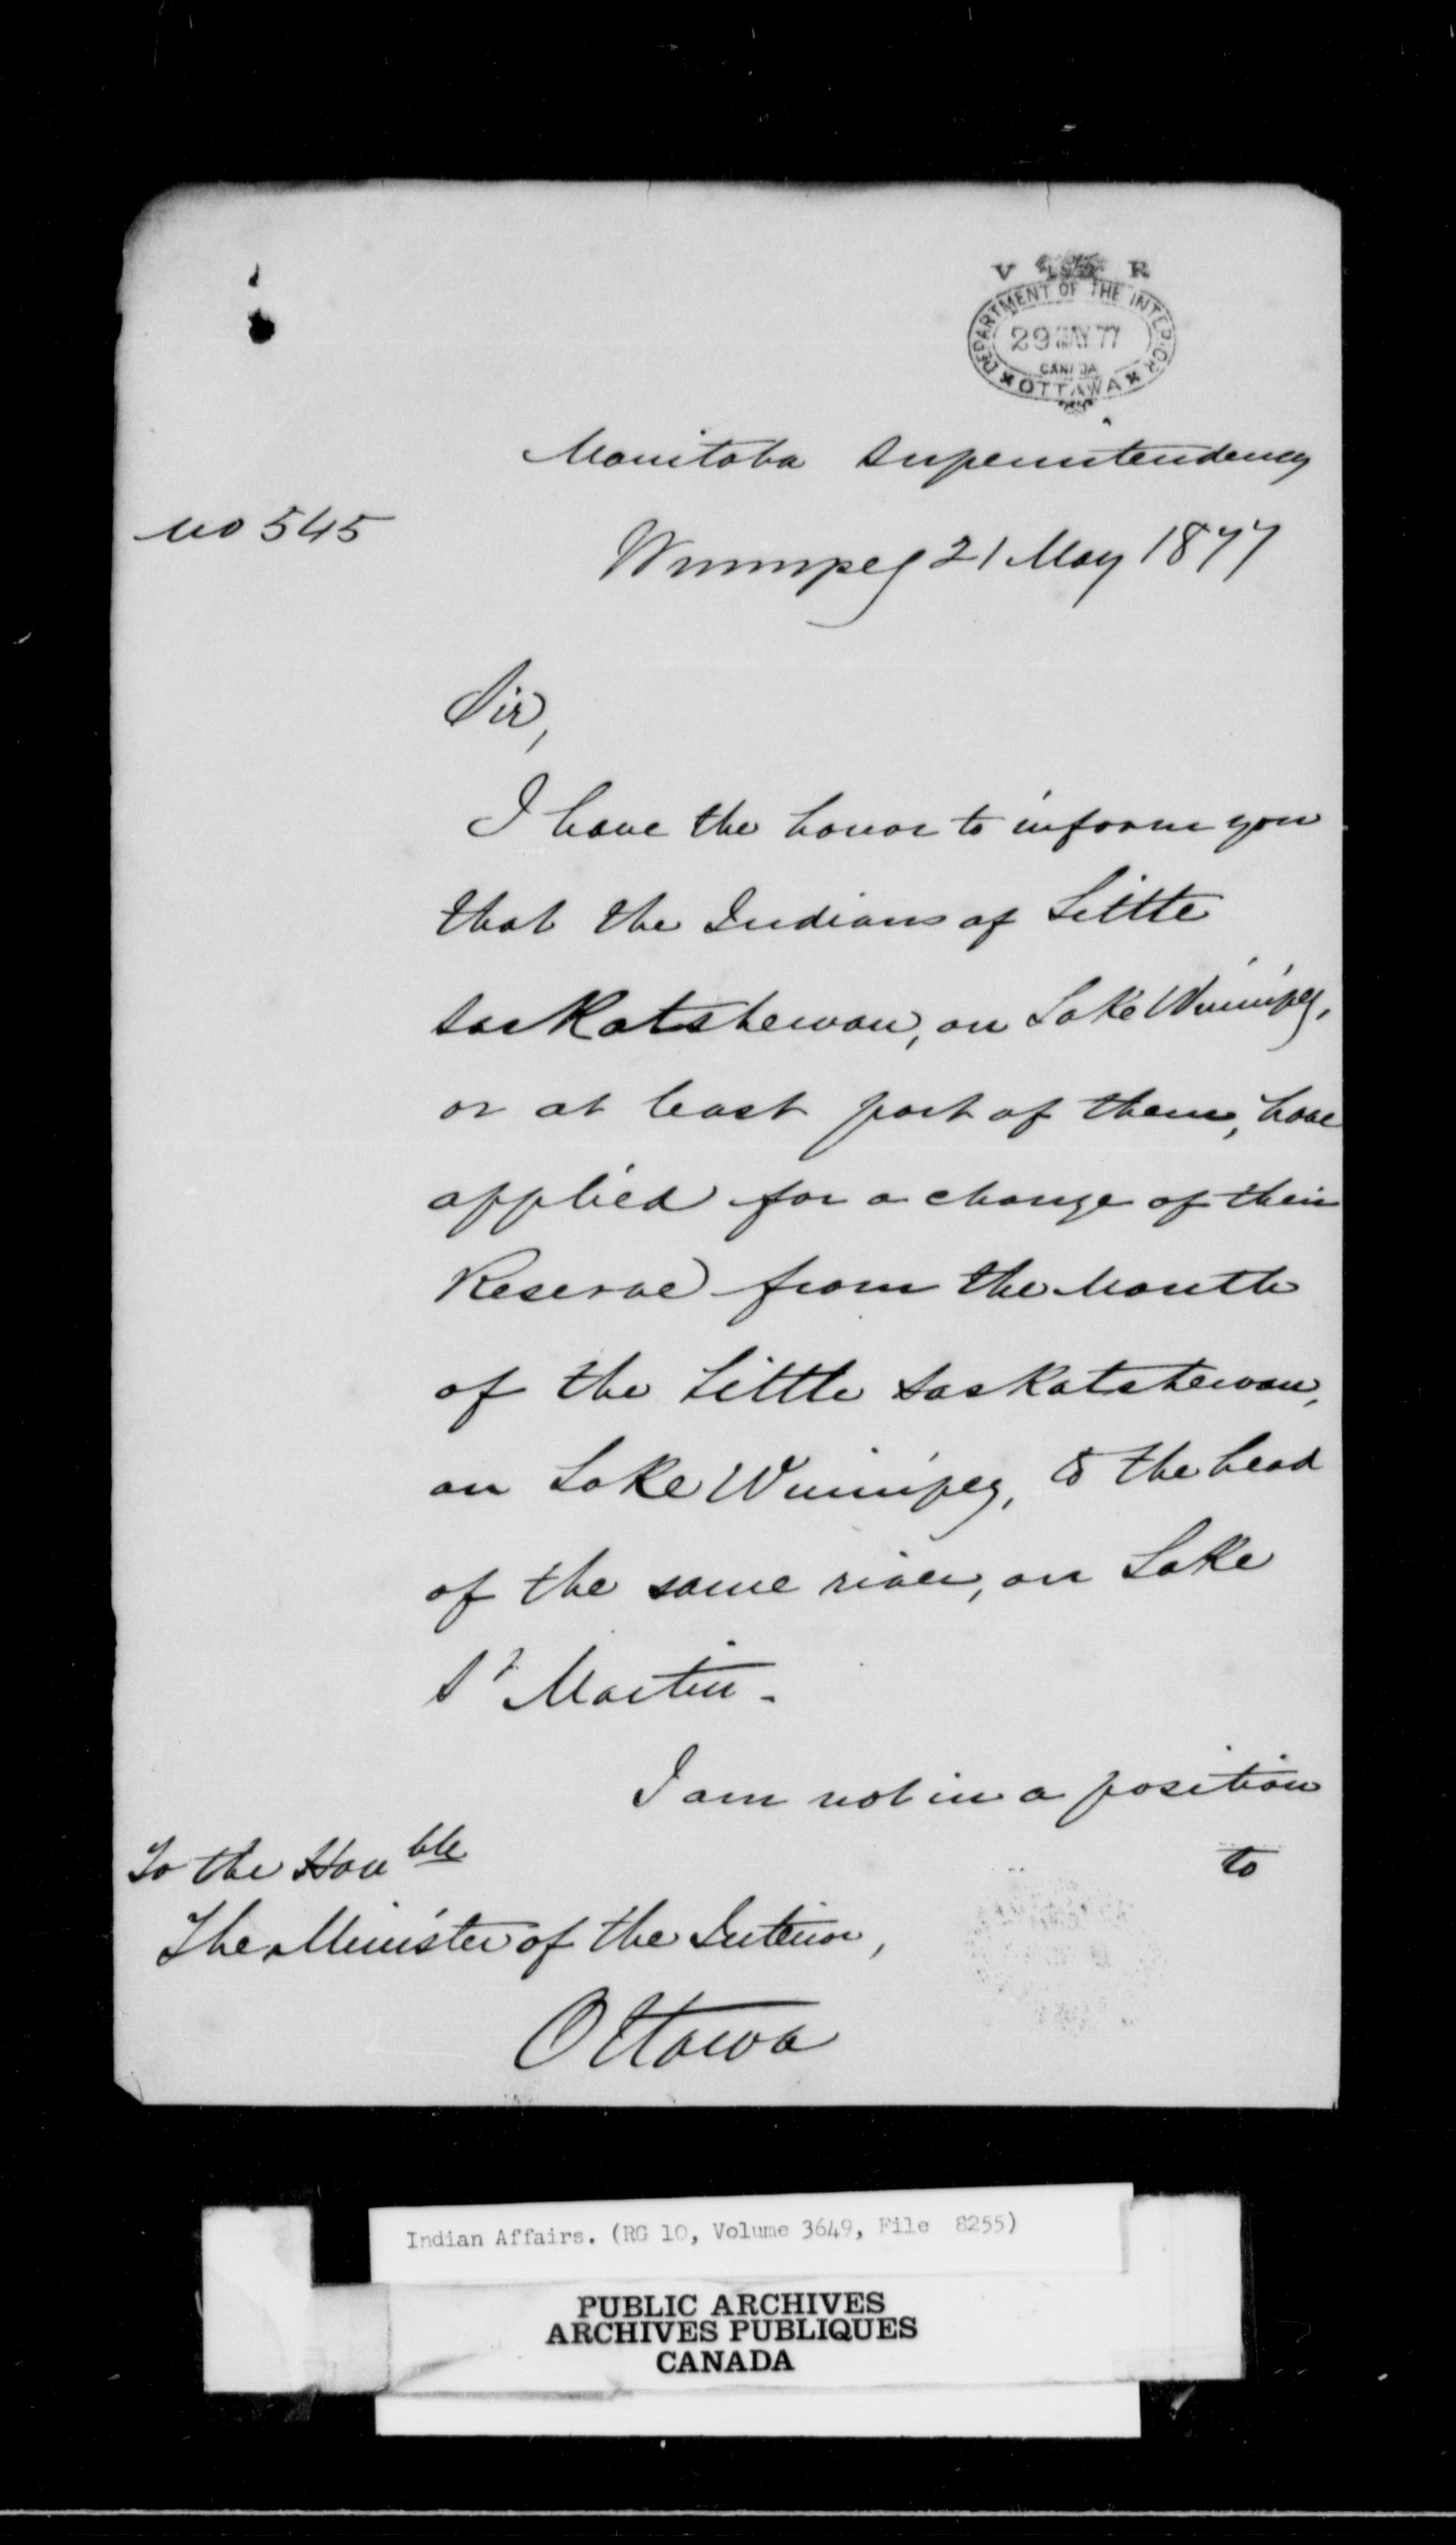 V R
DEPARTMENT OF THE INTERIOR
29 MAY 77
CANADA
OTTAWA
Manitoba Superintendency
No 545
Winnipeg 21 May 1877
Sir,
I have the honor to inform you
that the Indians of Little
Saskatshewan, on Lake Winnipeg,
or at least part of them, have
applied for a change of their
Reserve from the Mouth
of the Little Saskatshewan,
on Lake Winnipeg, to the head
of the same river, on Lake
St Martin.
I am not in a position
to
To the Honble
The Minister of the Interior,
Ottawa
Indian Affairs. (RG 10, Volume 3649, File 8255)
PUBLIC ARCHIVES
ARCHIVES PUBLIQUES
CANADA